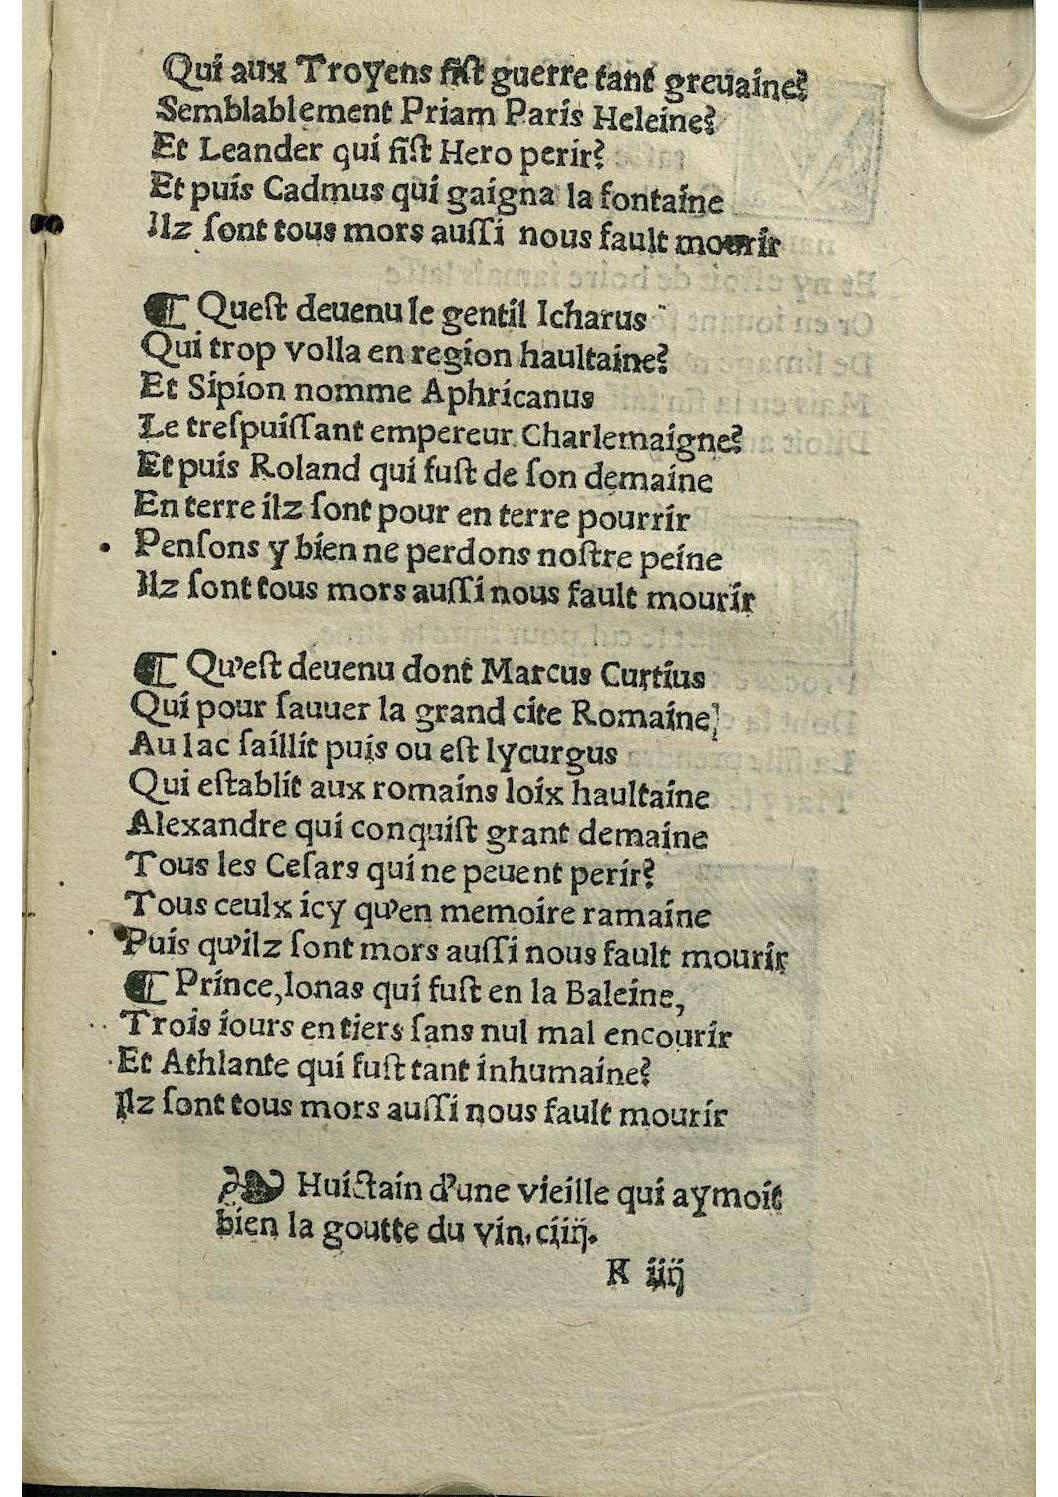 Qui aux Troyens fiſt guerre tant greuaine?
Semblablement Priam Paris Heleine?
Et Leander qui fiſt Hero perir?
Et puis Cadmus qui gaigna la fontaine
Ilz ſont tous mors auſſi nous fault mourir
¶ Queſt deuenu le gentil Icharus
Qui trop volla en region haultaine?
Et Sipion nomme Aphricanus
Le treſpuiſſant empereur Charlemaigne?
Et puis Roland qui fuſt de ſon demaine
En terre ilz ſont pour en terre pourrir
Penſons y bien ne perdons noſtre peine
Ilz ſont tous mors auſſi nous fault mourir
¶ Qu'eſt deuenu dont Marcus Curtius
Qui pour ſauuer la grand cite Romaine,
Au lac ſaillit puis ou eſt lycurgus
Qui eſtablit aux romains loix haultaine
Alexandre qui conquiſt grant demaine
Tous les Ceſars qui ne peuent perir?
Tous ceulx icy qu'en memoire ramaine
Puis qu'ilz ſont mors auſſi nous fault mourir
¶ Prince, Ionas qui fuſt en la Baleine,
Trois iours entiers ſans nul mal encourir
Et Athlante qui fuſt tant inhumaine?
Ilz ſont tous mors auſſi nous fault mourir
❧ Huictain d'une vieille qui aymoit
bien la goutte du vin. ciiij.
K iiij